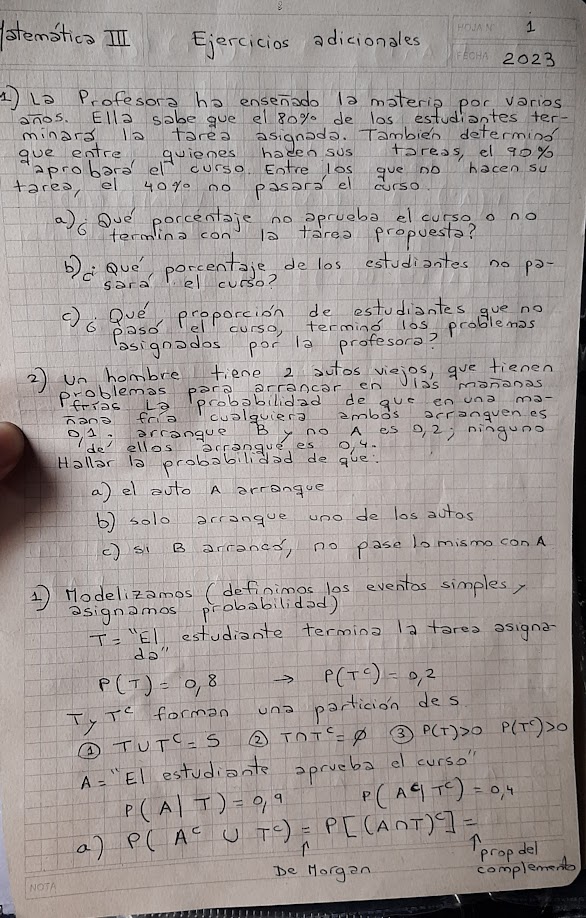 Matemática III
Ejercicios adicionales
HOJA Nº 1
FECHA 2023
1) La Profesora ha enseñado la materia por varios
años. Ella sabe que el 80% de los estudiantes ter-
minará la tarea asignada. También determinó
que entre quienes hacen sus tareas, el 90%
aprobará el curso. Entre los que no hacen su
tarea, el 40% no pasará el curso.
a) ¿Qué porcentaje no aprueba el curso o no
termina con la tarea propuesta?
b) ¿Qué porcentaje de los estudiantes no pa-
sará el curso?
c) ¿Qué proporción de estudiantes que no
pasó el curso, terminó los problemas
asignados por la profesora?
2) Un hombre tiene 2 autos viejos, que tienen
problemas para arrancar en las mañanas
frías. La probabilidad de que en una ma-
ñana fría cualquiera ambos arranquen es
0,1. arranque B y no A es 0,2; ninguno
de ellos arranque es 0,4.
Hallar la probabilidad de que:
a) el auto A arranque
b) solo arranque uno de los autos
c) si B arrancó, no pase lo mismo con A
1) Modelizamos (definimos los eventos simples y
asignamos probabilidad)
T = "El estudiante termina la tarea asigna-
da"
P(T) = 0,8 → P(Tᶜ) = 0,2
T y Tᶜ forman una partición de S
① T∪Tᶜ = S ② T∩Tᶜ = ∅ ③ P(T)>0 P(Tᶜ)>0
A = "El estudiante aprueba el curso"
P(A|T) = 0,9 P(Aᶜ|Tᶜ) = 0,4
a) P(Aᶜ ∪ Tᶜ) = P[(A∩T)ᶜ] =
↑ De Morgan
↑ prop del
complemento
NOTA